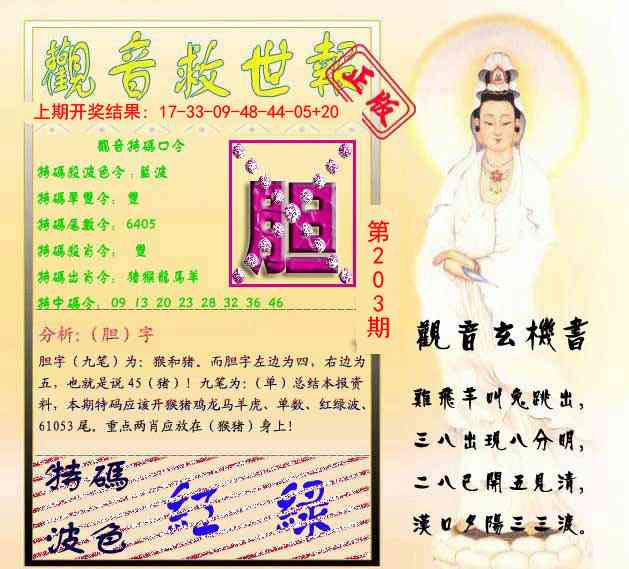 觀音救世報
正版
上期开奖结果：17-33-09-48-44-05+20
觀音特碼口令
特碼殺波色令：藍波
特碼單雙令： 雙
特碼尾數令： 6405
特碼殺肖令： 雙
特碼出肖令： 猪猴龍馬羊
特中碼令： 09 13 20 23 28 32 36 46
胆
第203期
分析:（胆）字
胆字（九笔）为：猴和猪。而胆字左边为四，右边为
五，也就是说 45（猪）！九笔为：（单）总结本报资
料，本期特码应该开猴猪鸡龙马羊虎、单数、红绿波、
61053 尾。重点两肖应放在（猴猪）身上！
特碼
波色
紅 綠
觀音玄機書
雞飛羊叫兔跳出，
三八出現八分明，
二八已開五見清，
漢口夕陽三三渡。